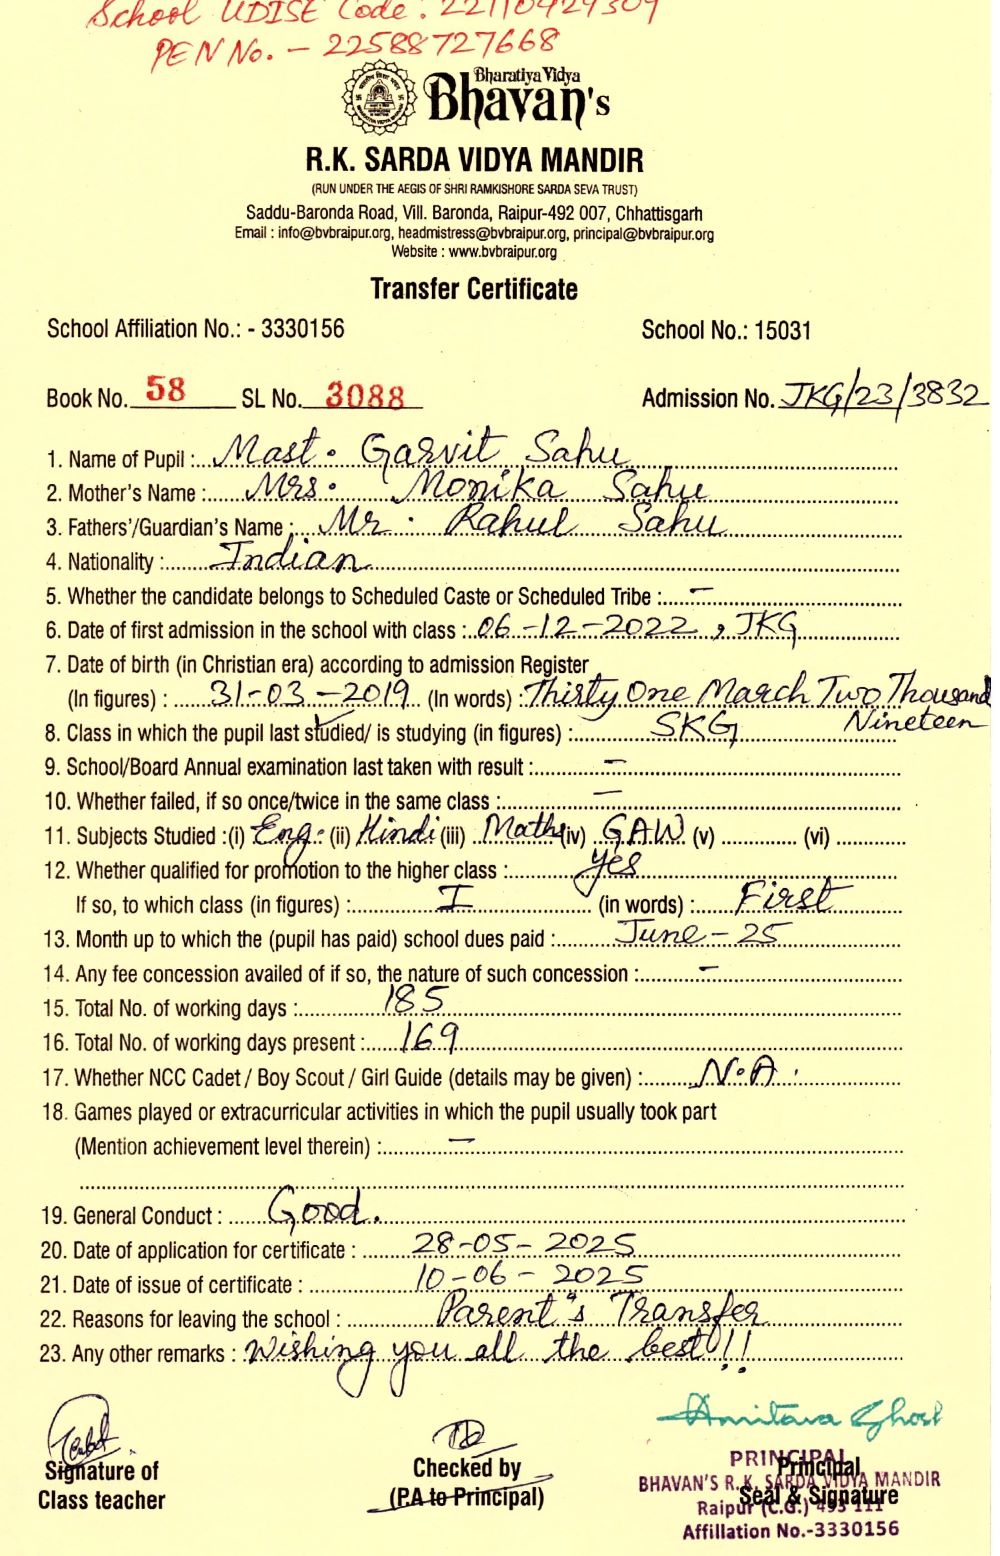 School UDISE Code : 22110429309
PEN No. - 22588727668
Bharatiya Vidya
Bhavan's
R.K. SARDA VIDYA MANDIR
(RUN UNDER THE AEGIS OF SHRI RAMKISHORE SARDA SEVA TRUST)
Saddu-Baronda Road, Vill. Baronda, Raipur-492 007, Chhattisgarh
Email : info@bvbraipur.org, headmistress@bvbraipur.org, principal@bvbraipur.org
Website : www.bvbraipur.org
Transfer Certificate
School Affiliation No.: - 3330156 School No.: 15031
Book No. 58 SL No. 3088 Admission No. JKG/23/3832
1. Name of Pupil : Mast. Garvit Sahu
2. Mother's Name : Mrs. Monika Sahu
3. Fathers'/Guardian's Name : Mr. Rahul Sahu
4. Nationality : Indian
5. Whether the candidate belongs to Scheduled Caste or Scheduled Tribe : -
6. Date of first admission in the school with class : 06-12-2022, JKG
7. Date of birth (in Christian era) according to admission Register
(In figures) : 31-03-2019 (In words) : Thirty One March Two Thousand
Nineteen
8. Class in which the pupil last studied/ is studying (in figures) : SKG
9. School/Board Annual examination last taken with result : -
10. Whether failed, if so once/twice in the same class : -
11. Subjects Studied :(i) Eng. (ii) Hindi (iii) Maths (iv) GAW (v) ............. (vi) ............
12. Whether qualified for promotion to the higher class : yes
If so, to which class (in figures) : I (in words) : First
13. Month up to which the (pupil has paid) school dues paid : June-25
14. Any fee concession availed of if so, the nature of such concession : -
15. Total No. of working days : 185
16. Total No. of working days present : 169
17. Whether NCC Cadet / Boy Scout / Girl Guide (details may be given) : N.A.
18. Games played or extracurricular activities in which the pupil usually took part
(Mention achievement level therein) : -
19. General Conduct : Good.
20. Date of application for certificate : 28-05-2025
21. Date of issue of certificate : 10-06-2025
22. Reasons for leaving the school : Parent's Transfer
23. Any other remarks : Wishing you all the best!!
Amitava Ghosh
Signature of
Class teacher
Checked by
(P.A to Principal)
Principal
Seal & Signature
PRINCIPAL
BHAVAN'S R.K. SARDA VIDYA MANDIR
Raipur (C.G.) 493 111
Affillation No.-3330156